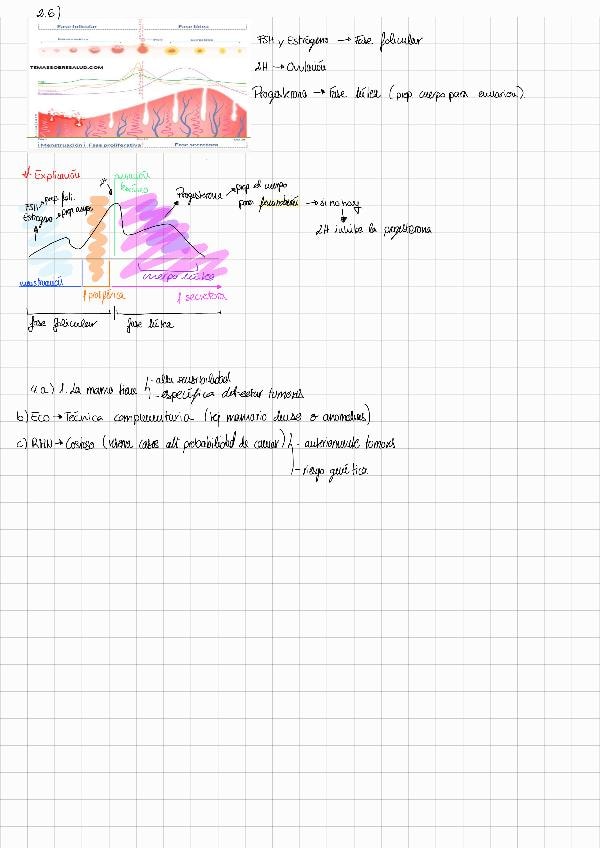 2.6)
Fase folicular
Fase lútea
FSH y Estrógeno → Fase folicular
TEMASSOBRESALUD.COM
LH → Ovulación
Progesterona → Fase lútea (prep cuerpo para
Menstruación
Fase proliferativa
Fase secretora
Explicación
FSH → prep. foli.
Estrógeno → prep
Progesterona → prep el cuerpo
para fecundación → si no hay
LH inhibe la progesterona
menstruación
cuerpo lúteo
f prolífica
f secretora
fase folicular
fase lútea
4.a) 1. La mamo tiene - alta sensibilidad
- específica detectar tumores
b) Eco → Técnica complementaria (tej mamario denso o anomalías)
c) RMN → Costoso (reserva casos alt probabilidad de cancer) - anteriormente tumores
- riesgo genética